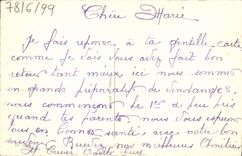 78/6/99
Chère Marie
Je fais reponse à ta gentille carte
comme je vois vous avez fait bon
retour tant mieux, ici nous sommes
en grands préparatifs de vendanges,
nous commençons le 1er a peu près
quand tes parents, nous vous espérons
tous en bonne santé, avec notre bon
souvenir Recevez nos meilleures Amitiés